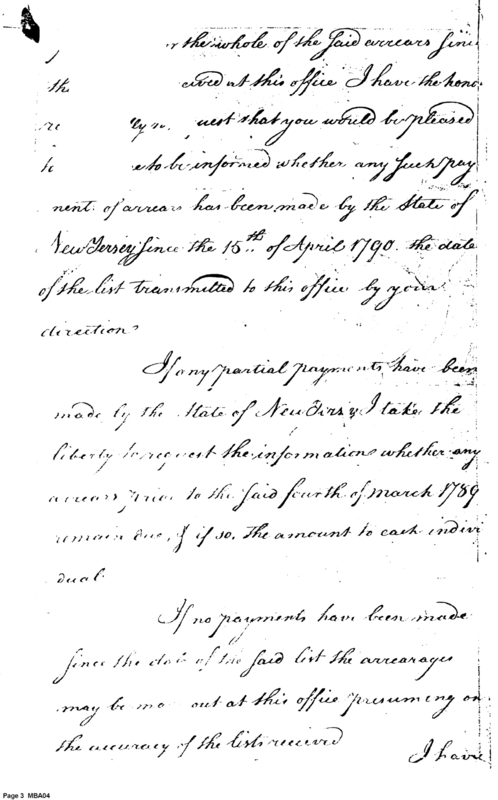 the whole of the said arrears sinc
th eived at this office I have the hono
re quest that you would be pleased
to be informed whether any such pay
ment of arrears has been made by the State of
New Jersey since the 15th of April 1790 the date
of the list transmitted to this office by your
direction
If any partial payments have been
made by the State of New Jersy I take the
liberty to request the information whether any
arrears prior to the said fourth of March 1789
remain due, & if so. the amount to each indivi
dual
If no payments have been made
since the date of the said list the arrearages
may be ma out at this office presuming on
the accuracy of the lists received
I have
Page 3 MBA04